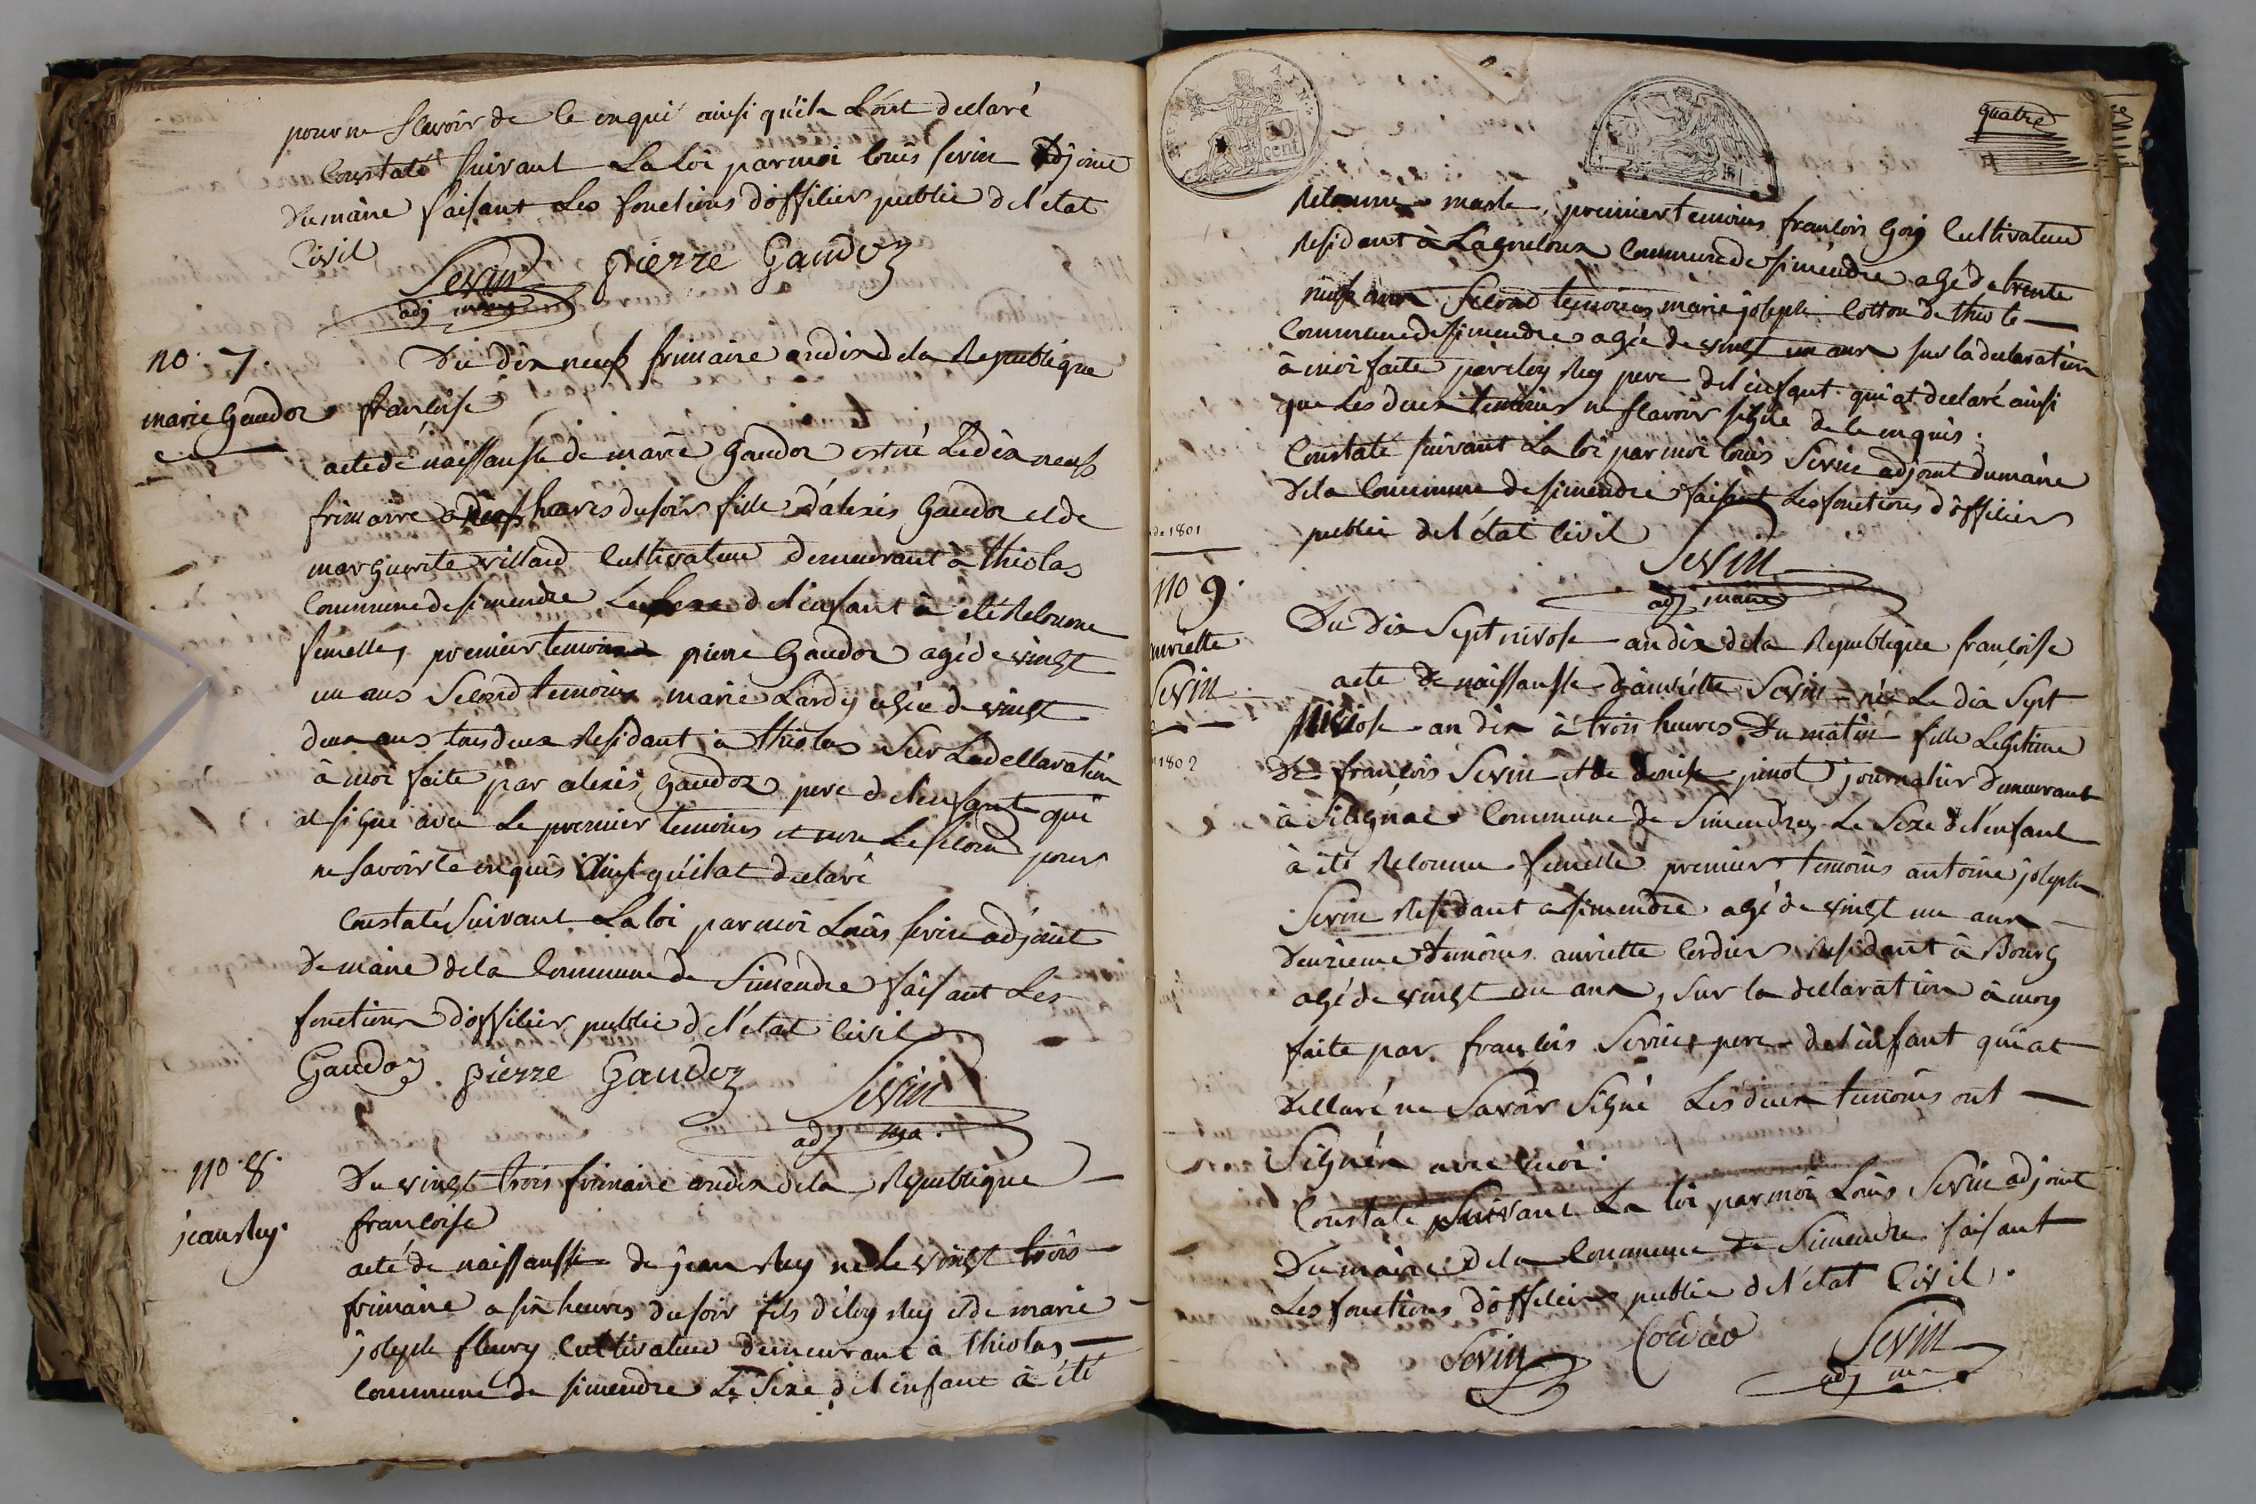 pour ne scavoir de ce enqui ainsi qu'ils l'ont declaré
Constaté suivant La loi par moi louis sevin adjoint
du maire faisant les fonctions d'officier public de l'etat
Civil
Sevin pierre Gaudoz
adj maire
no. 7.
marie Gaudoz
Du dix neuf frimaire an dix de la Republique
francoise
acte de naissansse de marie Gaudoz est né le dix neuf
frimaire a neuf heures du soir fille d'alexis Gaudoz et de
marguerite villard Cultivateur demeurant à thiolas
Commune de simendre Le sexe de l'enfant à eté Reconnue
femelle, premier temoins pierre Gaudoz agé de vingt
un ans second temoins marie Lardy agée de vingt
deux ans tous deux Residant à thiolas sur La dellaration
à moi faite par alexis Gaudoz pere de l'enfant qui
at signé avec Le premier temoins et non Le second pour
ne savoir ce enquis ainsi qu'il at declaré
Constaté suivant La loi par moi Louis sevin adjoint
de maire de la Commune de Simendre faisant Les
fonctions d'officier public de l'état Civil
Gaudoz pierre Gaudoz Sevin
adj ma.
no. 8.
jean Rey.
Du vingt trois frimaire an dix de la Republique
francoise
acte de naissansse de jean Rey né le vingt trois
frimaire a six heures du soir fils d'éloy Rey et de marie
joseph fleury Cultivateur demeurant à thiolas
Commune de simendre Le Sexe de l'enfant à été
quatre
50
cent
Reconnue masle, premier temoins francois Goy Cultivateur
Residant à Lagouloux Commune de simendre agé de trente
neuf ans Second temoins marie joseph Cotton de thiole
Commune de simendre agée de vingt un ans sur la declaration
à moi faite par eloy Rey pere de l'enfant qui at declaré ainsi
que Les deux temoins ne scavoir signé de ce enquis.
Constaté suivant La loi par moi louis Sevin adjoint du maire
de la Commune de simendre faisant Les fonctions d'officier
public de l'état Civil
Sevin
adj maire
de 1801
no 9.
Sevin
1802
Du dix Sept nivose an dix de la Republique francoise
acte de naissansse d'anriette Sevin née Le dix Sept
nivose an dix à trois heures du matin fille Legitime
de francois Sevin et de denise pinot journalier demeurant
à Silignac Commune de Simendre, Le Sexe de l'enfant
à été Reconnu femelle premier temoins antoine joseph
Sevin Residant a simendre agé de vingt un ans
Deuxieme temoins anriette Cordier Residant à Bourg
agé de vingt du ans, sur la dellaration à moy
faite par francois Sevin pere de l'enfant qui at
Dellaré ne Savoir Signé Les deux temoins ont
Signés avec moi.
Constaté suivant La loi par moi Louis Sevin adjoint
Du maire de la Commune de Simendre faisant
Les fonctions d'officier public de l'état Civil.
Sevin Sevin
adj ma